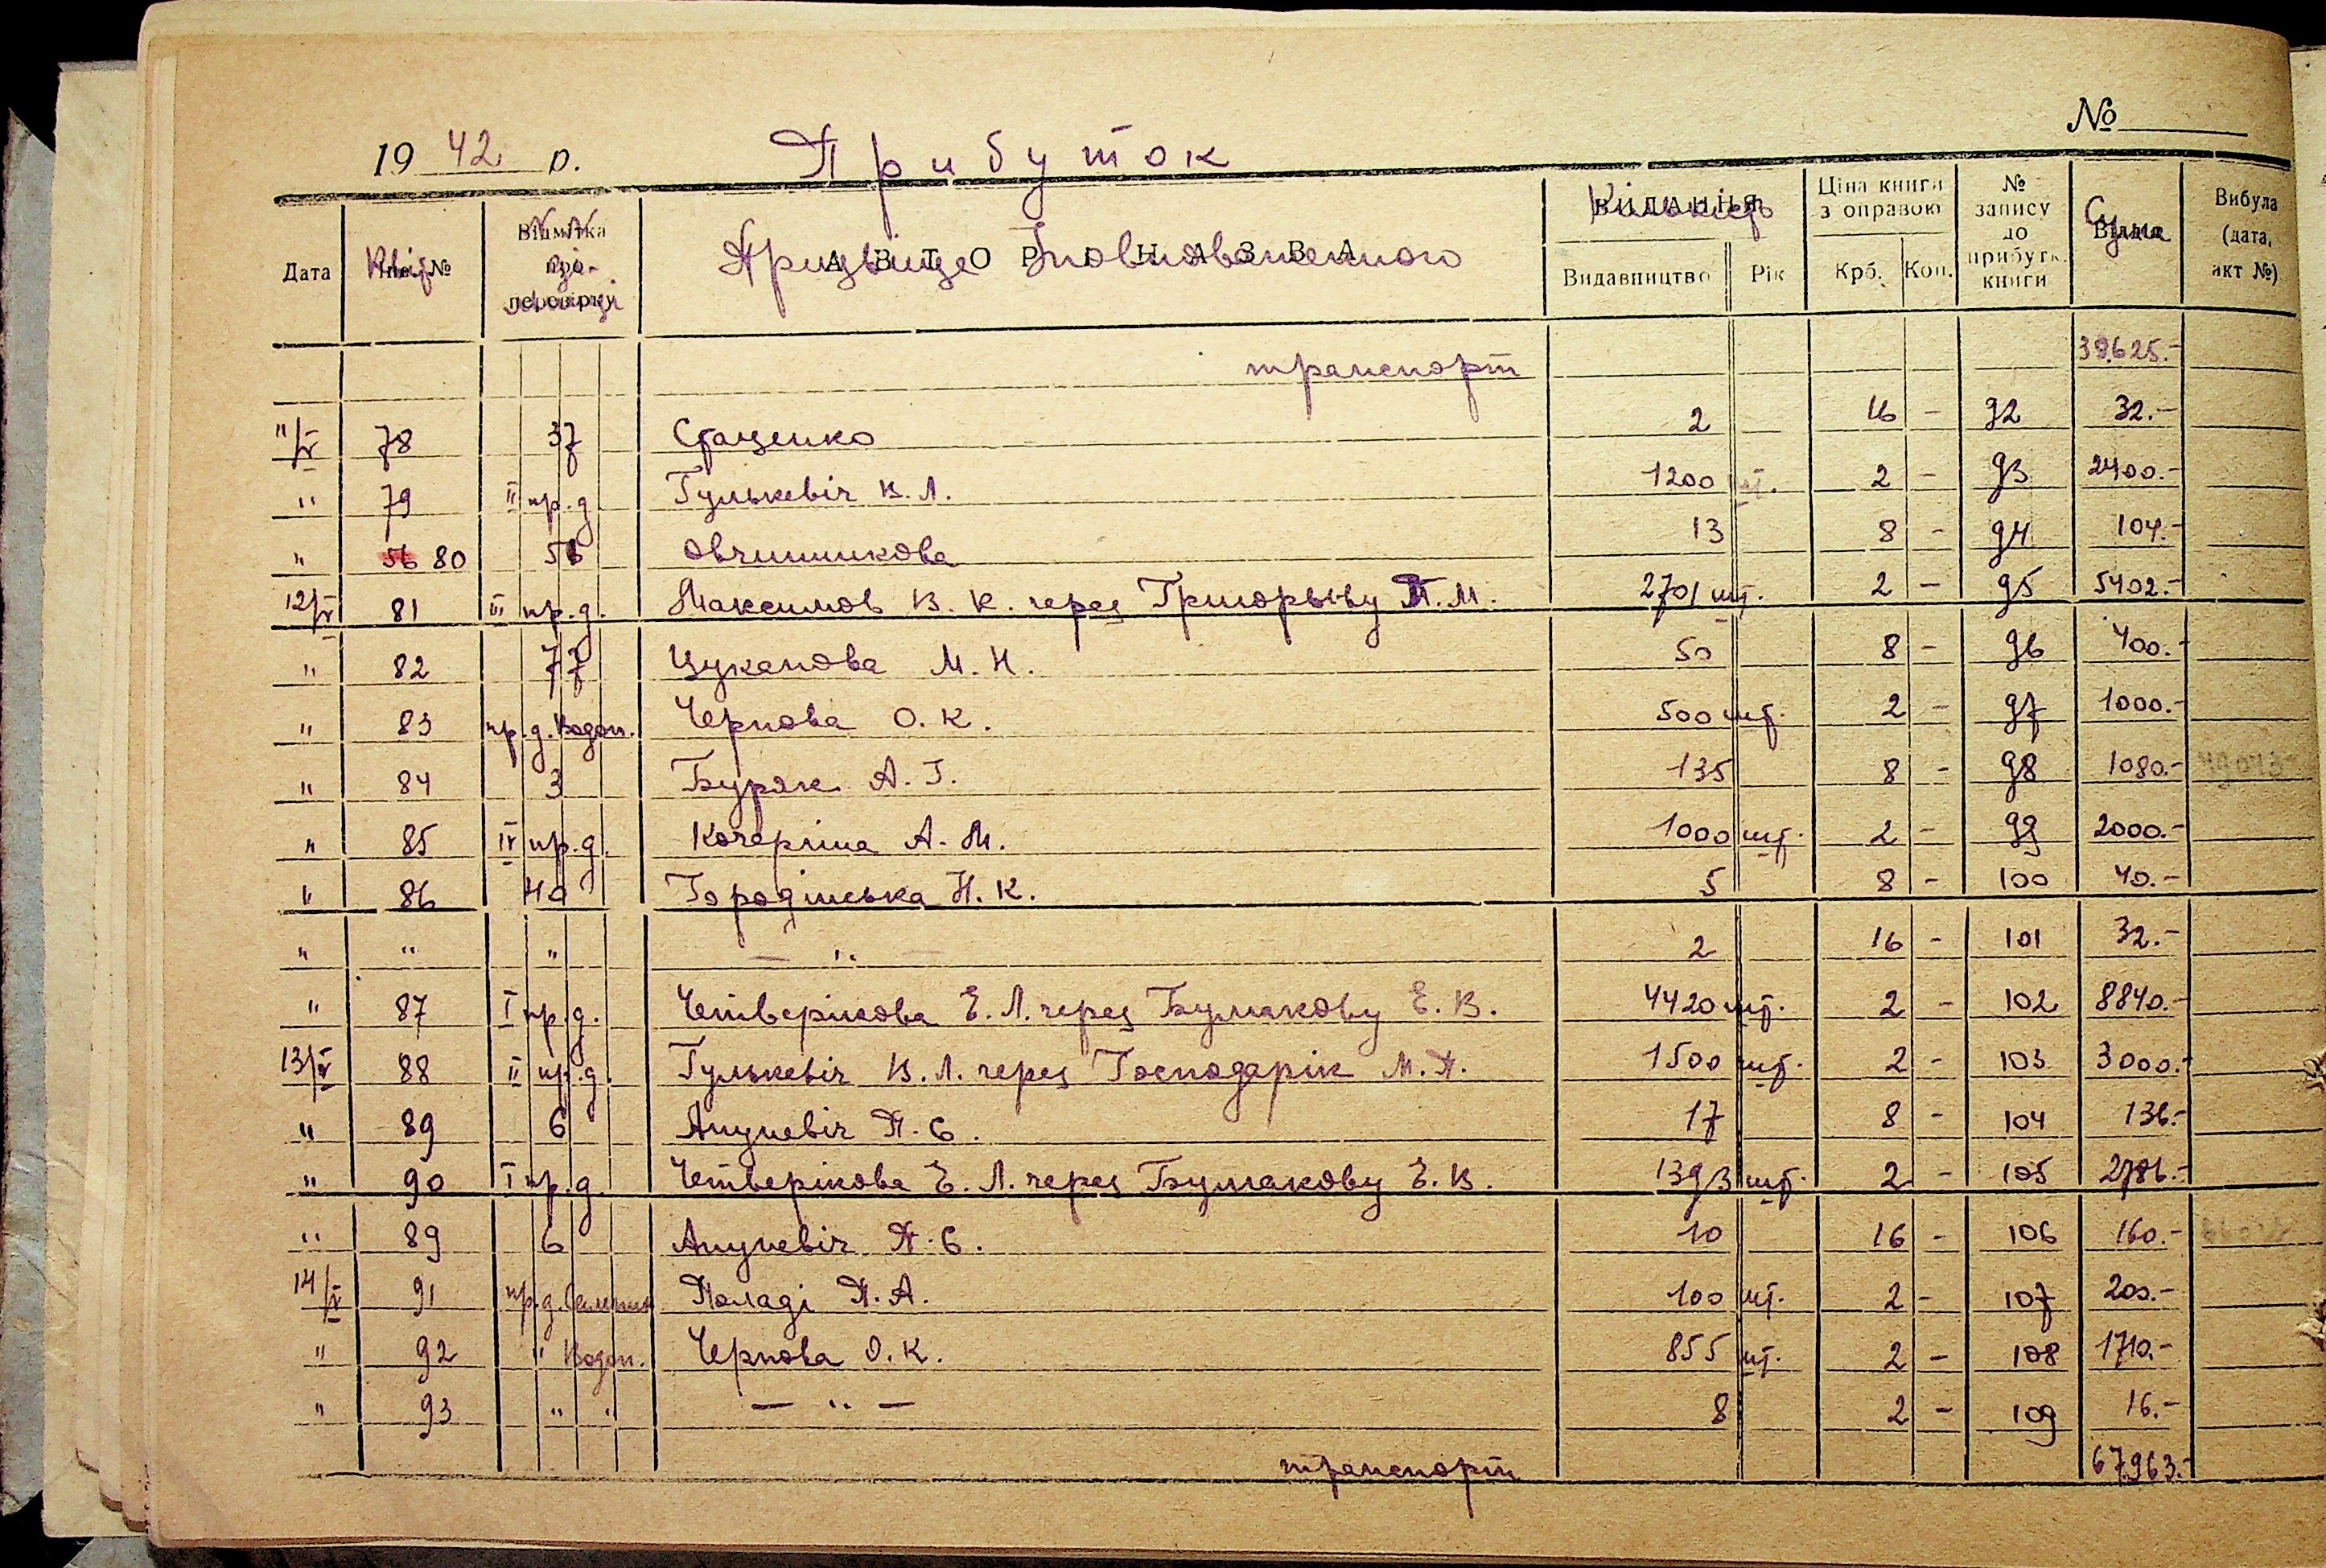 №
19 42 р. Прибуток
Дата Квіт. № Відмітка про перевірку Прізвище Уповноваженного Кількість Ціна книги з оправою № запису до прибутк. книги Сума Вибула (дата, акт №)
АВТОР І НАЗВА
Видавництво Рік Крб. Коп.
транспорт 39.625.-
11/V 78 37 Стаценко 2 16 - 92 32.-
" 79 II пр.д. Гулькевіч В. Л. 1200 шт. 2 - 93 2400.-
" 56 80 56 Овчиннікова 13 8 - 94 104.-
12/V 81 III пр.д. Максимов В. К. через Григорьеву П. М. 2701 шт. 2 - 95 5402.-
" 82 77 Цуканова М. Н. 50 8 - 96 400.-
" 83 пр.д. Водоп. Чернова О. К. 500 шт. 2 - 97 1000.-
" 84 3 Буряк А. Г. 135 8 - 98 1080.-
" 85 IV пр.д. Кочергіна А. М. 1000 шт. 2 - 99 2000.-
" 86 40 Городінська Н. К. 5 8 - 100 40.-
" " " — " — 2 16 - 101 32.-
" 87 I пр.д. Четверікова Е. Л. через Бумакову Е. В. 4420 шт. 2 - 102 8840.-
13/V 88 II пр.д. Гулькевіч В. Л. через Господарік М. П. 1500 шт. 2 - 103 3000.-
" 89 6 Янушевіч П. С. 17 8 - 104 136.-
" 90 I пр.д. Четверікова Е. Л. через Бумакову Е. В. 1393 шт. 2 - 105 2786.-
" 89 6 Янушевіч П. С. 10 16 - 106 160.-
14/V 91 пр.д. Паладі П. А. 100 шт. 2 - 107 200.-
" 92 " Водоп. Чернова О. К. 855 шт. 2 - 108 1710.-
" 93 " " — " — 8 2 - 109 16.-
транспорт 67.963.-